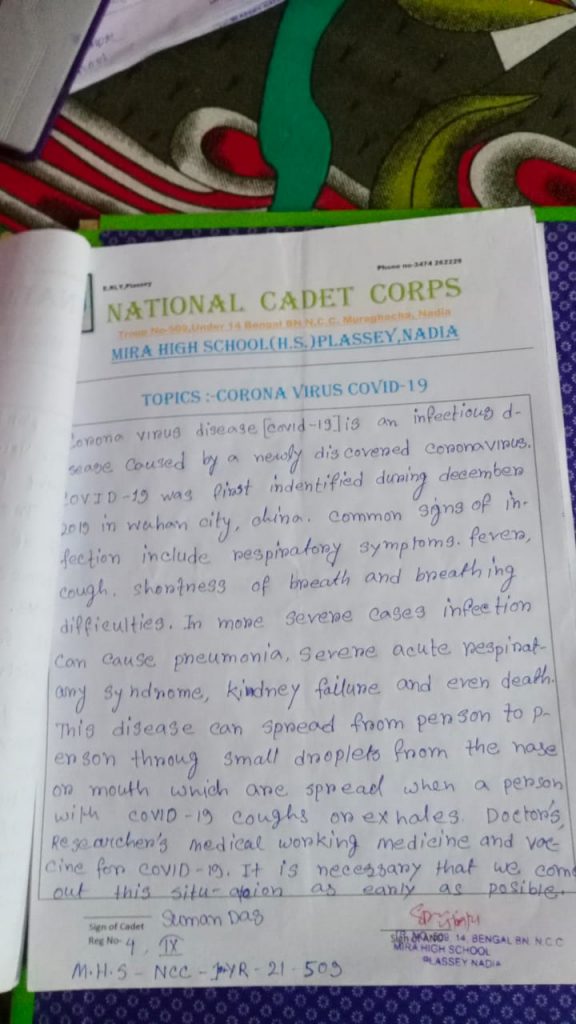 E.Rly.Plassey
Phone no-3474 262226
NATIONAL CADET CORPS
Troop No-509,Under 14 Bengal BN.N.C.C. Muraghacha, Nadia
MIRA HIGH SCHOOL(H.S.)PLASSEY,NADIA
TOPICS :-CORONA VIRUS COVID-19
Corona virus disease [covid-19] is an infectious d-
sease caused by a newly discovered coronavirus.
COVID-19 was first indentified during december
2019 in wuhan city, china. common signs of in-
fection include respiratory symptoms. fever,
cough, shortness of breath and breathing
difficulties. In more severe cases infection
can cause pneumonia, severe acute respirat-
ary syndnome, kindney failure and even death.
This disease can spread from person to p-
erson throug small droplets from the nose
or mouth which are spread when a person
with covid-19 coughs or exhales. Doctor's,
Researcher's medical working medicine and vac-
cine for COVID-19. It is necessary that we come
out this situ- as early as posible.
Sign of Cadet Suman Das
Reg No- 4, IX
M.H.S - NCC - YR - 21 - 509
Sign of ANO
TR. NO. 509, 14, BENGAL BN. N.C.C
MIRA HIGH SCHOOL
PLASSEY NADIA